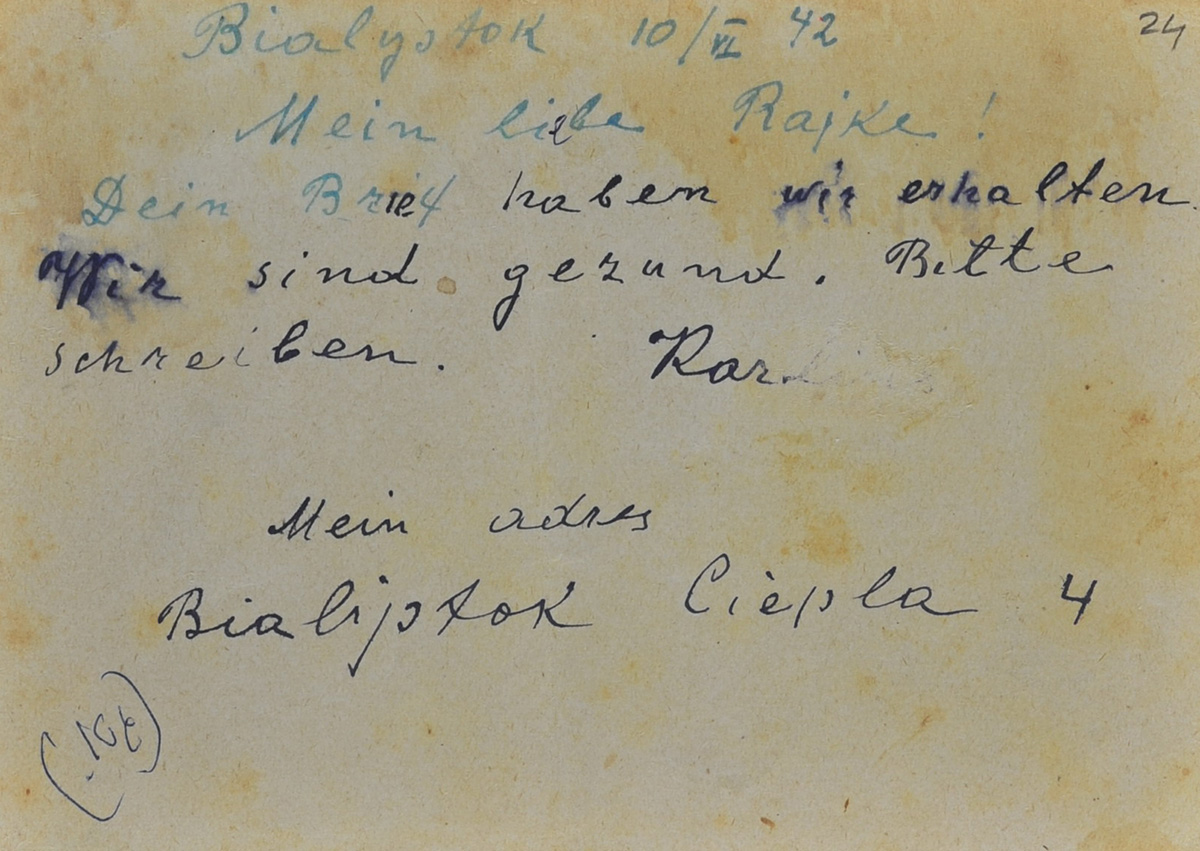 Bialystok 10/VI 42
24
Mein liebe Rajke!
Dein Brief haben wir erhalten
Wir sind gezund. Bitte
schreiben.
Mein adres
Bialijstok Ciepla 4